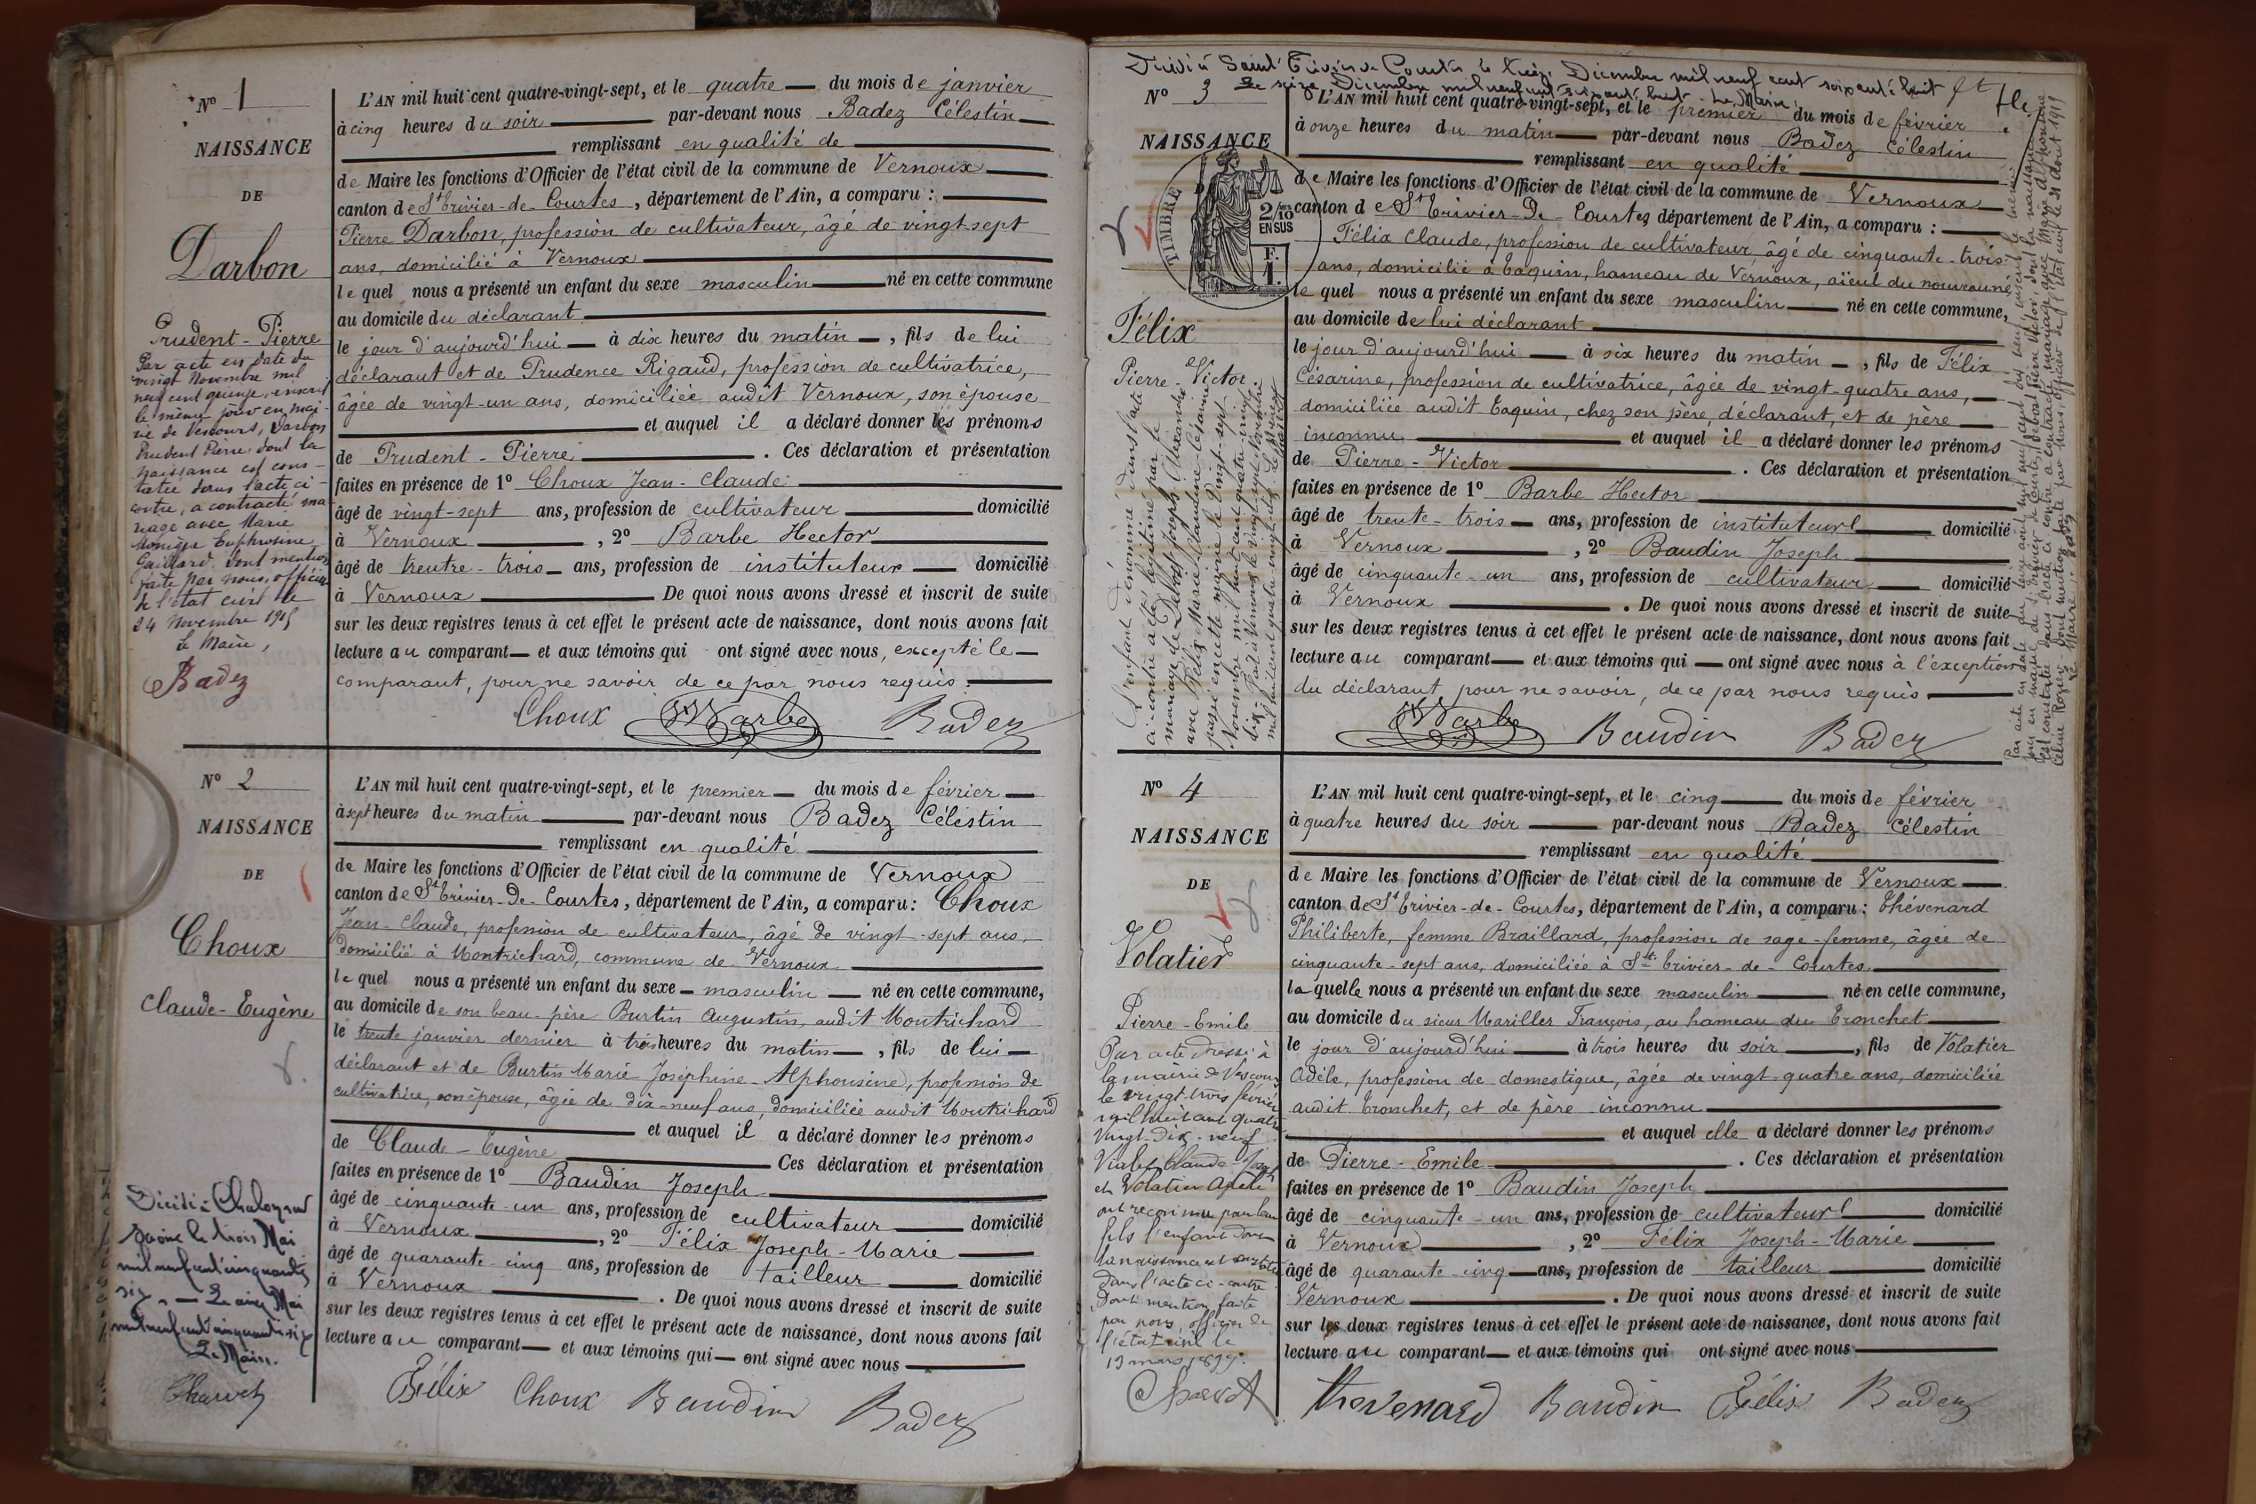 N° 1
NAISSANCE
DE
Darbon
Prudent-Pierre
Par acte en date du
vingt Novembre mil
neuf cent quinze, inscrit
le même jour en mai-
rie de Vescours, Darbon
Prudent Pierre dont la
naissance est cons-
tatée dans l'acte ci-
contre, a contracté ma-
riage avec Marie
Monique Euphrosine
Gaillard. Dont mention
faite par nous, officier
de l'état civil le
24 Novembre 1915
Le Maire,
Badez
L'AN mil huit cent quatre-vingt-sept, et le quatre du mois de janvier
à cinq heures du soir par-devant nous Badez Célestin
remplissant en qualité de
de Maire les fonctions d'Officier de l'état civil de la commune de Vernoux
canton de St Trivier-de-Courtes, département de l'Ain, a comparu :
Pierre Darbon, profession de cultivateur, âgé de vingt sept
ans, domicilié à Vernoux
lequel nous a présenté un enfant du sexe masculin né en cette commune
au domicile du déclarant
le jour d'aujourd'hui à dix heures du matin, fils de lui
déclarant et de Prudence Rigaud, profession de cultivatrice,
âgée de vingt-un ans, domiciliée audit Vernoux, son épouse
et auquel il a déclaré donner les prénoms
de Prudent-Pierre. Ces déclaration et présentation
faites en présence de 1° Choux Jean-Claude
âgé de vingt-sept ans, profession de cultivateur domicilié
à Vernoux, 2° Barbe Hector
âgé de trentre-trois ans, profession de instituteur domicilié
à Vernoux De quoi nous avons dressé et inscrit de suite
sur les deux registres tenus à cet effet le présent acte de naissance, dont nous avons fait
lecture au comparant et aux témoins qui ont signé avec nous, excepté le
comparant, pour ne savoir de ce par nous requis.
Choux Barbe Badez
N° 2
NAISSANCE
DE
Choux
Claude-Eugène
Décédé à Chalon sur
Saône le trois Mai
mil neuf cent cinquante
six. Le cinq Mai
mil neuf cent cinquante six
Le Maire.
L'AN mil huit cent quatre-vingt-sept, et le premier du mois de février
à sept heures du matin par-devant nous Badez Célestin
remplissant en qualité
de Maire les fonctions d'Officier de l'état civil de la commune de Vernoux
canton de St Trivier-De-Courtes, département de l'Ain, a comparu : Choux
Jean-Claude, profession de cultivateur, âgé de vingt-sept ans,
domicilié à Montrichard, commune de Vernoux
lequel nous a présenté un enfant du sexe masculin né en cette commune,
au domicile de son beau-père Burtin Augustin, audit Montrichard
le trente janvier dernier à trois heures du matin, fils de lui
déclarant et de Burtin Marie Joséphine-Alphonsine, profession de
cultivatrice, son épouse, âgée de dix-neuf ans, domiciliée audit Montrichard
et auquel il a déclaré donner les prénoms
de Claude-Eugène Ces déclaration et présentation
faites en présence de 1° Baudin Joseph
âgé de cinquante-un ans, profession de cultivateur domicilié
à Vernoux, 2° Félix Joseph-Marie
âgé de quarante-cinq ans, profession de tailleur domicilié
à Vernoux. De quoi nous avons dressé et inscrit de suite
sur les deux registres tenus à cet effet le présent acte de naissance, dont nous avons fait
lecture au comparant et aux témoins qui ont signé avec nous
Félix Choux Baudin Badez
Décédé à Saint Trivier de Courtes le treize Décembre mil neuf cent soixante huit
Le seize Décembre mil neuf cent soixante huit Le Maire.
N° 3
NAISSANCE
TIMBRE
2/10 EN SUS
F. 1.
Félix
Pierre-Victor
L'enfant dénommé dans l'acte
ci-contre a été légitimé par le
mariage de Joseph Alexandre
avec Félix Marie Claudine Césarine
passé en cette mairie le vingt-sept
Novembre mil huit cent quatre-vingt
L'AN mil huit cent quatre-vingt-sept, et le premier du mois de février
à onze heures du matin par-devant nous Badez Célestin
remplissant en qualité
de Maire les fonctions d'Officier de l'état civil de la commune de Vernoux
canton de St Trivier-De-Courtes, département de l'Ain, a comparu :
Félix Claude, profession de cultivateur, âgé de cinquante-trois
ans, domicilié à Taquin, hameau de Vernoux, aïeul du nouveau né
lequel nous a présenté un enfant du sexe masculin né en cette commune,
au domicile de lui déclarant
le jour d'aujourd'hui à six heures du matin, fils de Félix
Césarine, profession de cultivatrice, âgée de vingt-quatre ans,
domiciliée audit Taquin, chez son père, déclarant, et de père
inconnu et auquel il a déclaré donner les prénoms
de Pierre-Victor. Ces déclaration et présentation
faites en présence de 1° Barbe Hector
âgé de trente-trois ans, profession de instituteur domicilié
à Vernoux, 2° Baudin Joseph
âgé de cinquante-un ans, profession de cultivateur domicilié
à Vernoux. De quoi nous avons dressé et inscrit de suite
sur les deux registres tenus à cet effet le présent acte de naissance, dont nous avons fait
lecture au comparant et aux témoins qui ont signé avec nous à l'exception
du déclarant pour ne savoir, de ce par nous requis
Barbe Baudin Badez
N° 4
NAISSANCE
DE
Volatier
Pierre-Emile
Par acte dressé à
la mairie de Vescours
le vingt-trois février
mil huit cent quatre
vingt-dix-neuf
Vialet Claude-Joseph
et Volatier Adèle
ont reconnu pour leur
fils l'enfant dont
la naissance est constatée
dans l'acte ci-contre
Dont mention faite
par nous, officier de
l'état civil le
19 mars 1899.
L'AN mil huit cent quatre-vingt-sept, et le cinq du mois de février
à quatre heures du soir par-devant nous Badez Célestin
remplissant en qualité
de Maire les fonctions d'Officier de l'état civil de la commune de Vernoux
canton de St Trivier-de-Courtes, département de l'Ain, a comparu : Thévenard
Philiberte, femme Braillard, profession de sage-femme, âgée de
cinquante-sept ans, domiciliée à St Trivier-de-Courtes
laquelle nous a présenté un enfant du sexe masculin né en cette commune,
au domicile du sieur Mariller François, au hameau du Tronchet
le jour d'aujourd'hui à trois heures du soir, fils de Volatier
Adèle, profession de domestique, âgée de vingt-quatre ans, domiciliée
audit Tronchet, et de père inconnu
et auquel elle a déclaré donner les prénoms
de Pierre-Emile. Ces déclaration et présentation
faites en présence de 1° Baudin Joseph
âgé de cinquante-un ans, profession de cultivateur domicilié
à Vernoux, 2° Félix Joseph-Marie
âgé de quarante-cinq ans, profession de tailleur domicilié
Vernoux. De quoi nous avons dressé et inscrit de suite
sur les deux registres tenus à cet effet le présent acte de naissance, dont nous avons fait
lecture au comparant et aux témoins qui ont signé avec nous
thevenard Baudin Félix Badez